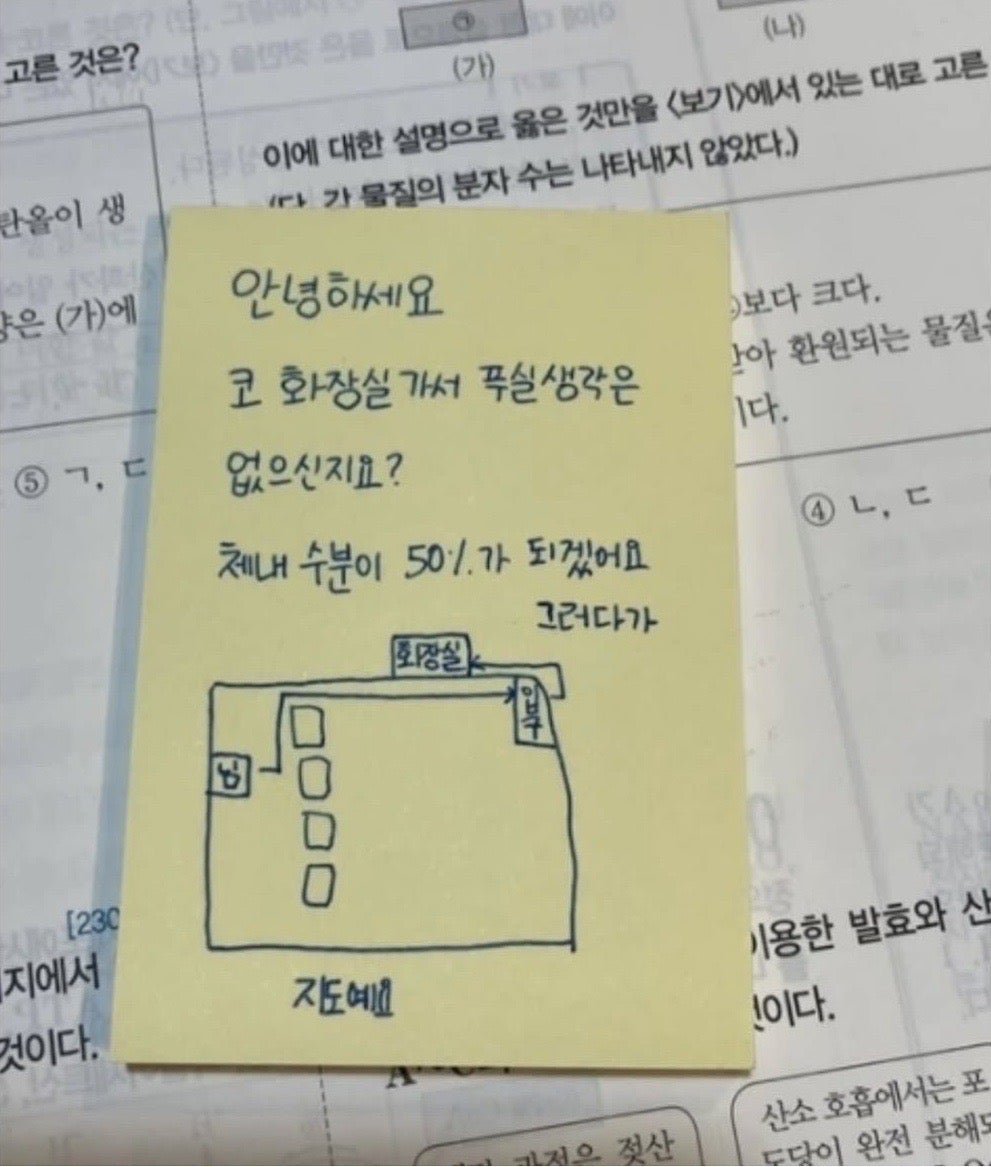 고른 것은?
㉠
(가)
(나)
이에 대한 설명으로 옳은 것만을 <보기>에서 있는 대로 고른
(단, 각 물질의 분자 수는 나타내지 않았다.)
탄올이 생
양은 (가)에
⑤ ㄱ, ㄷ
보다 크다.
환원되는 물질은
이다.
④ ㄴ, ㄷ
안녕하세요
코 화장실가서 푸실생각은
없으신지요?
체내 수분이 50%가 되겠어요
그러다가
화장실
입구
님
지도예요
[230
지에서
것이다.
이용한 발효와 산
것이다.
산소 호흡에서는 포
도당이 완전 분해되
과정은 젖산